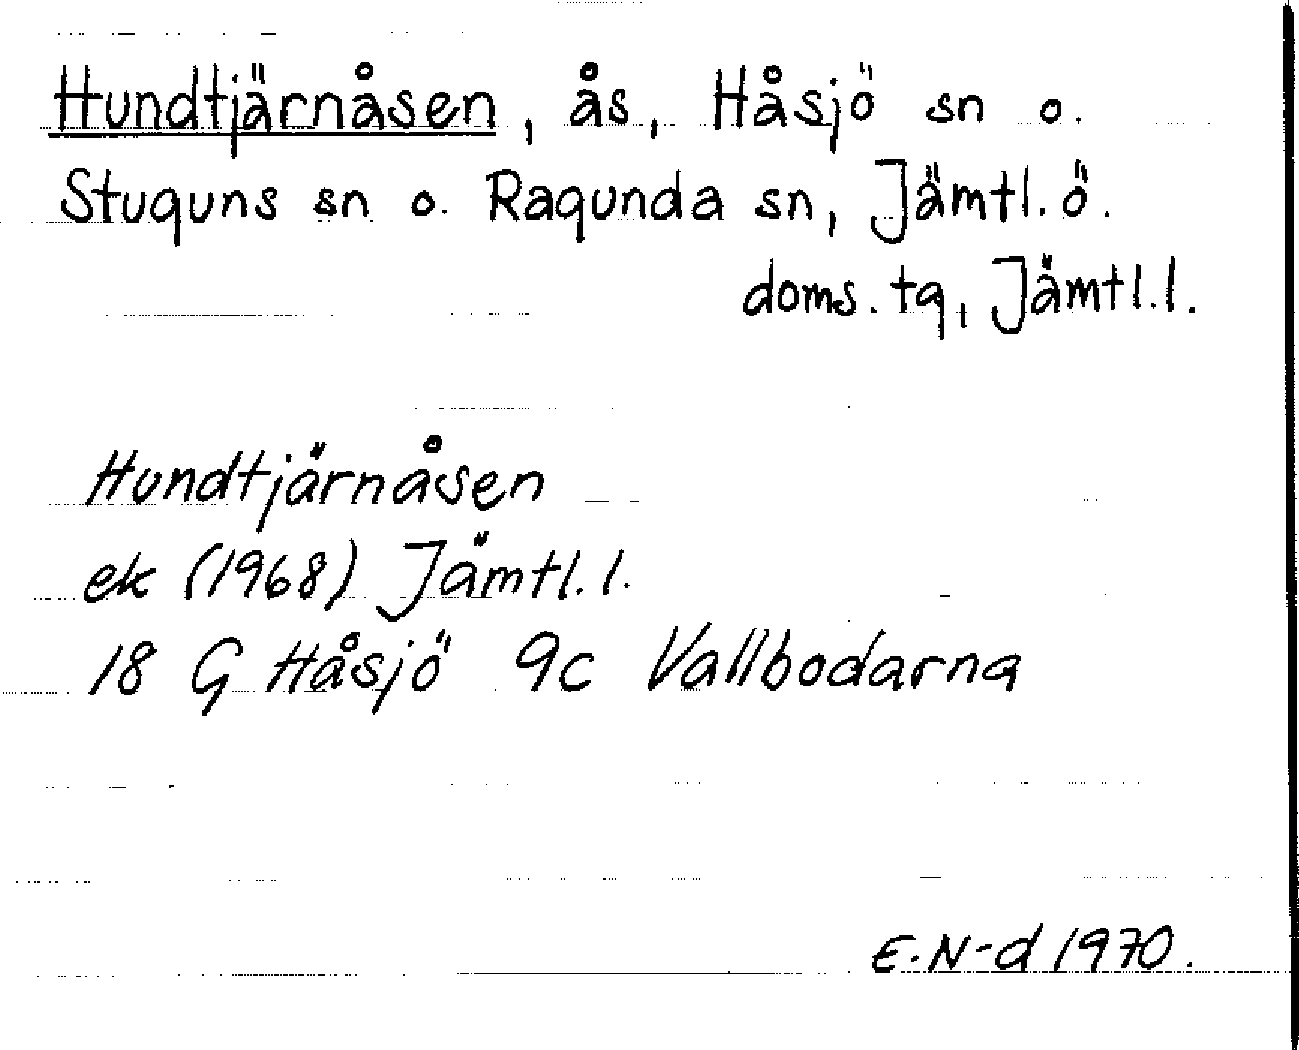 Hundtjärnåsen, ås, Håsjö sn o.
Stuguns sn o. Ragunda sn, Jämtl. ö.
doms. tg, Jämtl. l.
Hundtjärnåsen
ek (1968) Jämtl. l.
18 G Håsjö 9c Vallbodarna
E. N-d 1970.